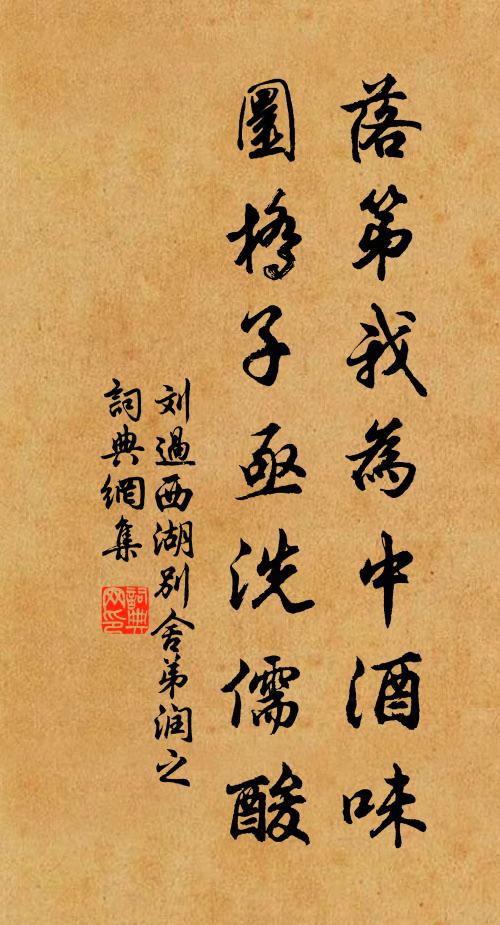 落第我為中酒味
圜橋子亟洗儒酸
刘過西湖別舍弟润之
詞典網集
詞典网印